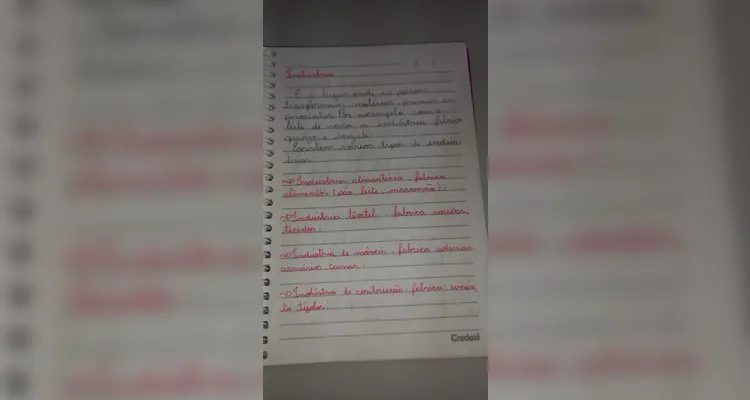 Indústria
É o lugar onde as pessoas
transformam matérias primas em
produtos. Por exemplo com o
leite de vaca a indústria fabrica
queijo e iogurte.
Existem vários tipos de indús
trias.
Indústria alimentícia fabrica
alimentos (pão, leite, macarrão);
Indústria têxtil fabrica roupas,
tecidos;
Indústria de móveis fabrica
armários camas;
Indústria de construção fabrica cimen
to tijolos;
Credeal